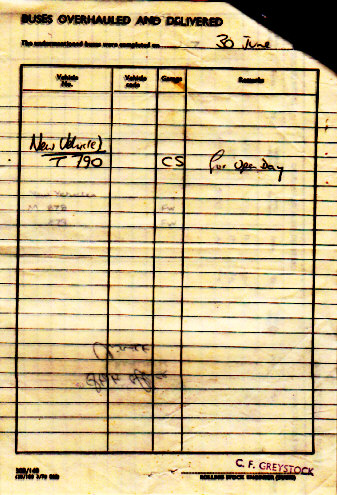 BUSES OVERHAULED AND DELIVERED
The undermentioned buses were completed on 30 June
Vehicle No. Vehicle code Garage Remarks
New Vehicle
T 790 CS For Open Day
New Vehicles
M 878 FW
879 FW
C. F. GREYSTOCK
ROLLING STOCK ENGINEER